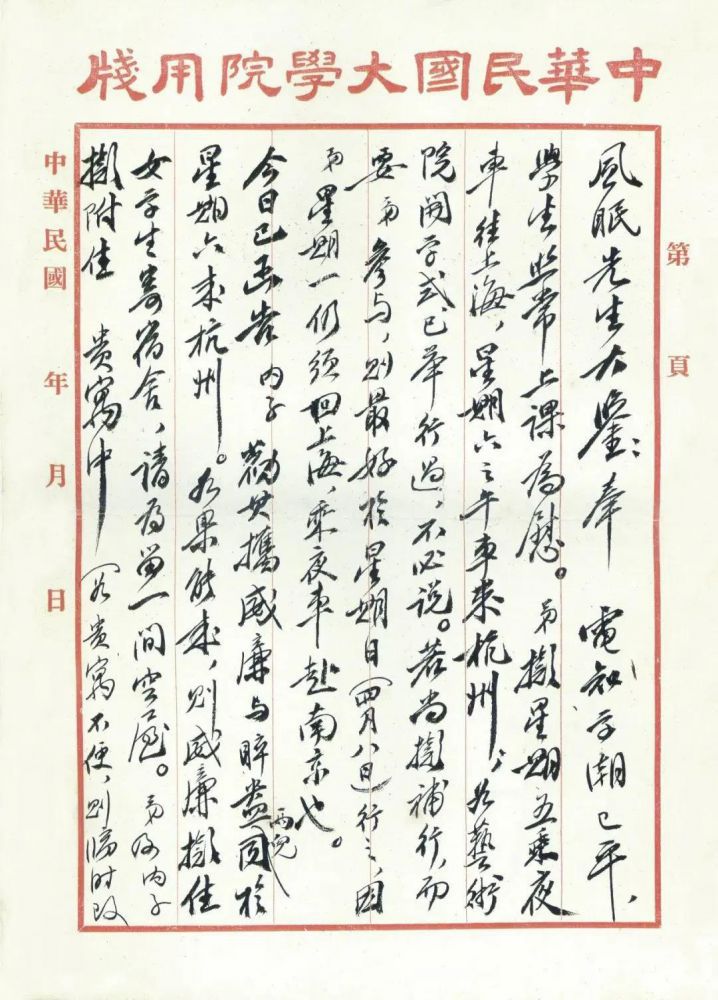 中華民國大學院用牋
第 頁
風眠先生大鑒：奉 電知學潮已平，
學生照常上課為慰。弟擬星期五乘夜
車往上海，星期六之午車來杭州；如藝術
院開學式已舉行過，不必說。若尚擬補行，而
要弟參与，則最好於星期日（四月八日）行之，因
弟星期一仍須回上海，乘夜車赴南京也。
今日已函告內子 勸其攜威廉与睟盎兩兒同於
星期六來杭州。如果能來，則威廉擬住
女學生寄宿舍，請為留一間空屋。弟及內子
擬附住 貴寓中（如貴寓不便，則臨時改
中華民國 年 月 日